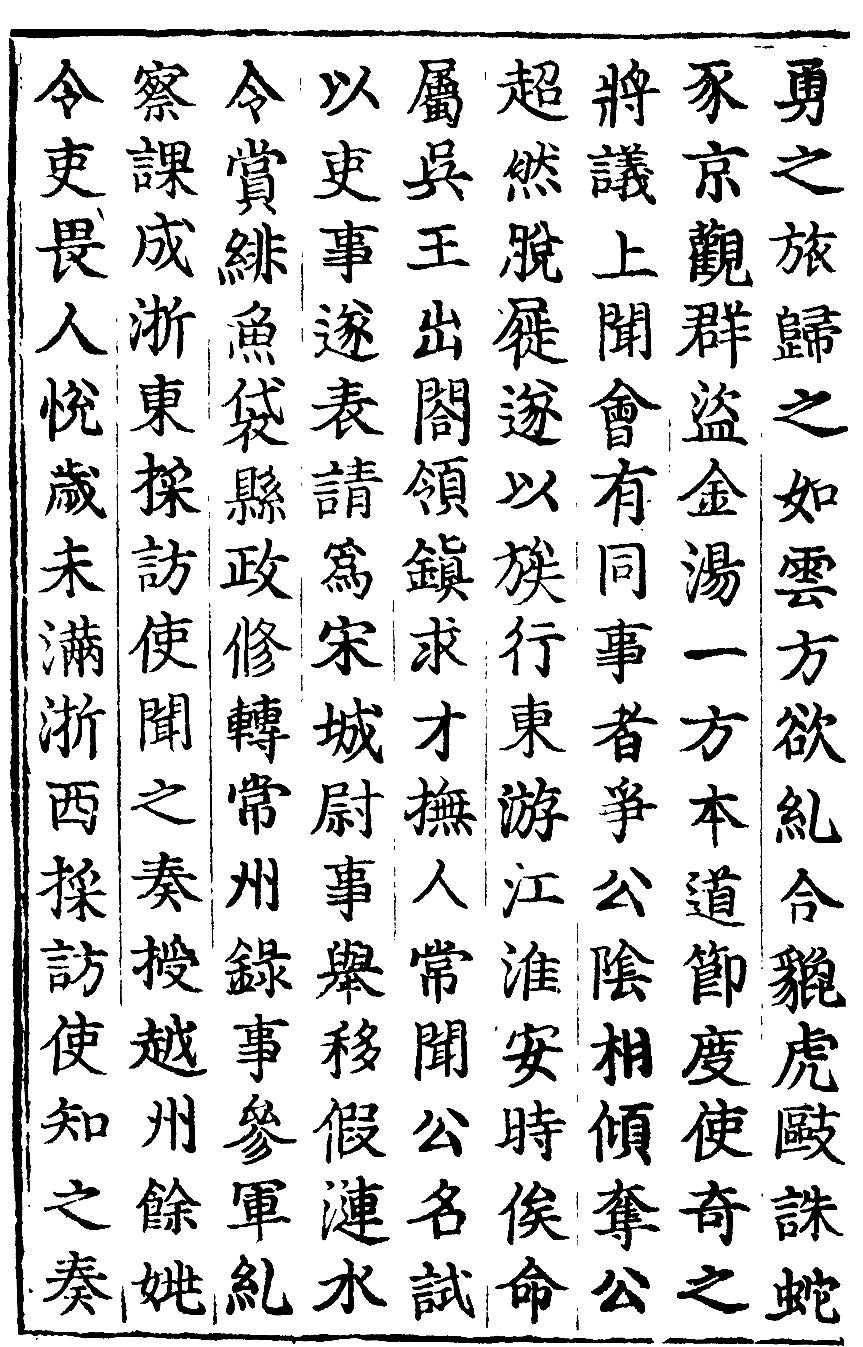 勇之旅歸之如雲方欲糺合貔虎敺誅蛇
豕京觀群盜金湯一方本道節度使奇之
將議上聞會有同事者爭公陰相傾奪公
超然脫屣遂以族行東游江淮安時俟命
屬吳王出閤領鎮求才撫人常聞公名試
以吏事遂表請爲宋城尉事舉移假漣水
令賞緋魚袋縣政修轉常州錄事參軍糺
察課成浙東採訪使聞之奏授越州餘姚
令吏畏人悅歲未滿浙西採訪使知之奏